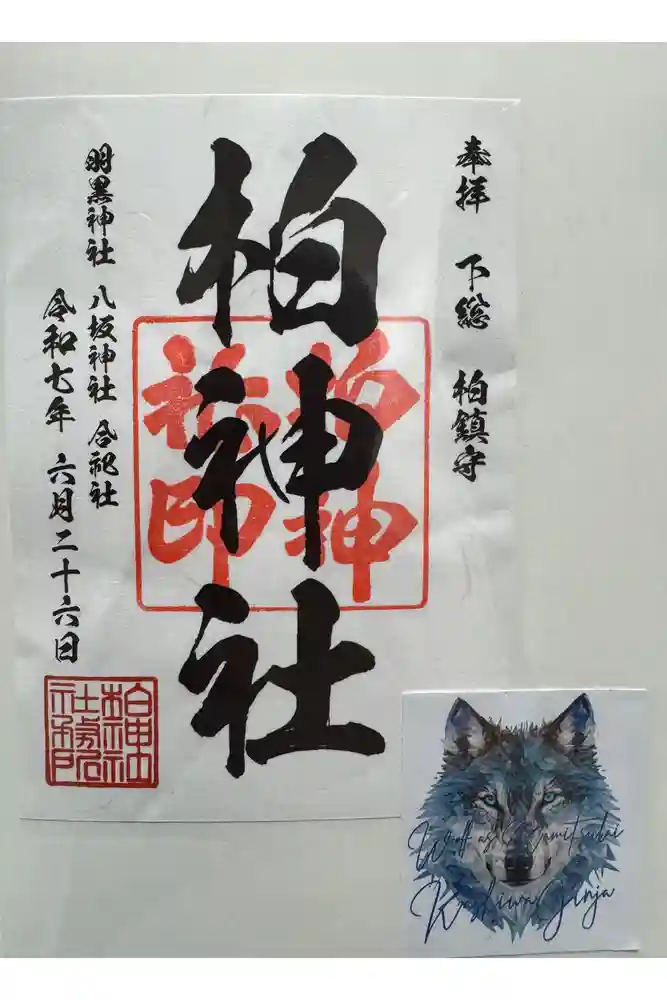 奉拝 下総 柏鎮守
柏神社
柏神
社印
羽黒神社 八坂神社 合祀社
令和七年 六月二十六日
柏神社
社務所
之印
Wolf as Kamitsukai
Kashiwa Jinja